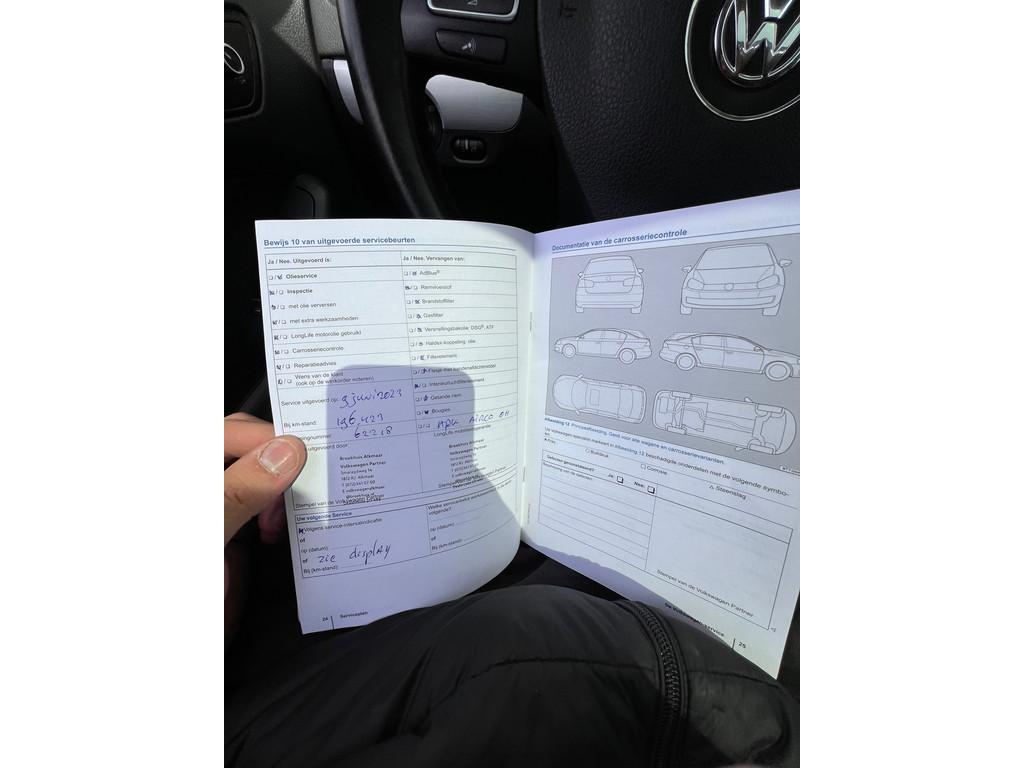 Bewijs 10 van uitgevoerde servicebeurten
Ja / Nee. Uitgevoerd is:
Olieservice
Inspectie
met olie verversen
met extra werkzaamheden
LongLife motorolie gebruikt
Carrosseriecontrole
Reparatieadvies
Wens van de klant
(ook op de werkorder noteren)
Service uitgevoerd op: 9 juni 2023
Bij km-stand: 196.423
62218
uitgevoerd door:
Broekhuis Alkmaar
Volkswagen Partner
Smaragdweg 14
1812 RJ Alkmaar
T (072) 541 07 00
Stempel van de
Ja / Nee. Vervangen van:
AdBlue®
Remvloeistof
Brandstoffilter
Gasfilter
Versnellingsbakolie: DSG®, ATF
Haldex-koppeling: olie
Filterelement
Interieurluchtfilterelement
Getande riem
Bougies
APK AIRCO OH
LongLife mobiliteitsgarantie
Broekhuis Alkmaar
Volkswagen Partner
Smaragdweg 14
1812 RJ Alkmaar
Uw volgende Service
Volgens service-intervalindicatie
of
op (datum):
of zie display
Bij (km-stand):
Welke servicebeurt
volgende?
op (datum):
of
Bij (km-stand):
24 Serviceplan
Documentatie van de carrosseriecontrole
Afbeelding 12 Principeafbeelding. Geldt voor alle wagens en carrosserievarianten.
Uw Volkswagen specialist markeert in Afbeelding 12 beschadigde onderdelen met de volgende symbo-
Kras
Buil/deuk
Corrosie
Steenslag
Defecten geconstateerd? Ja: Nee:
Beschrijving van de defecten:
Stempel van de Volkswagen Partner
De Volkswagen service 25